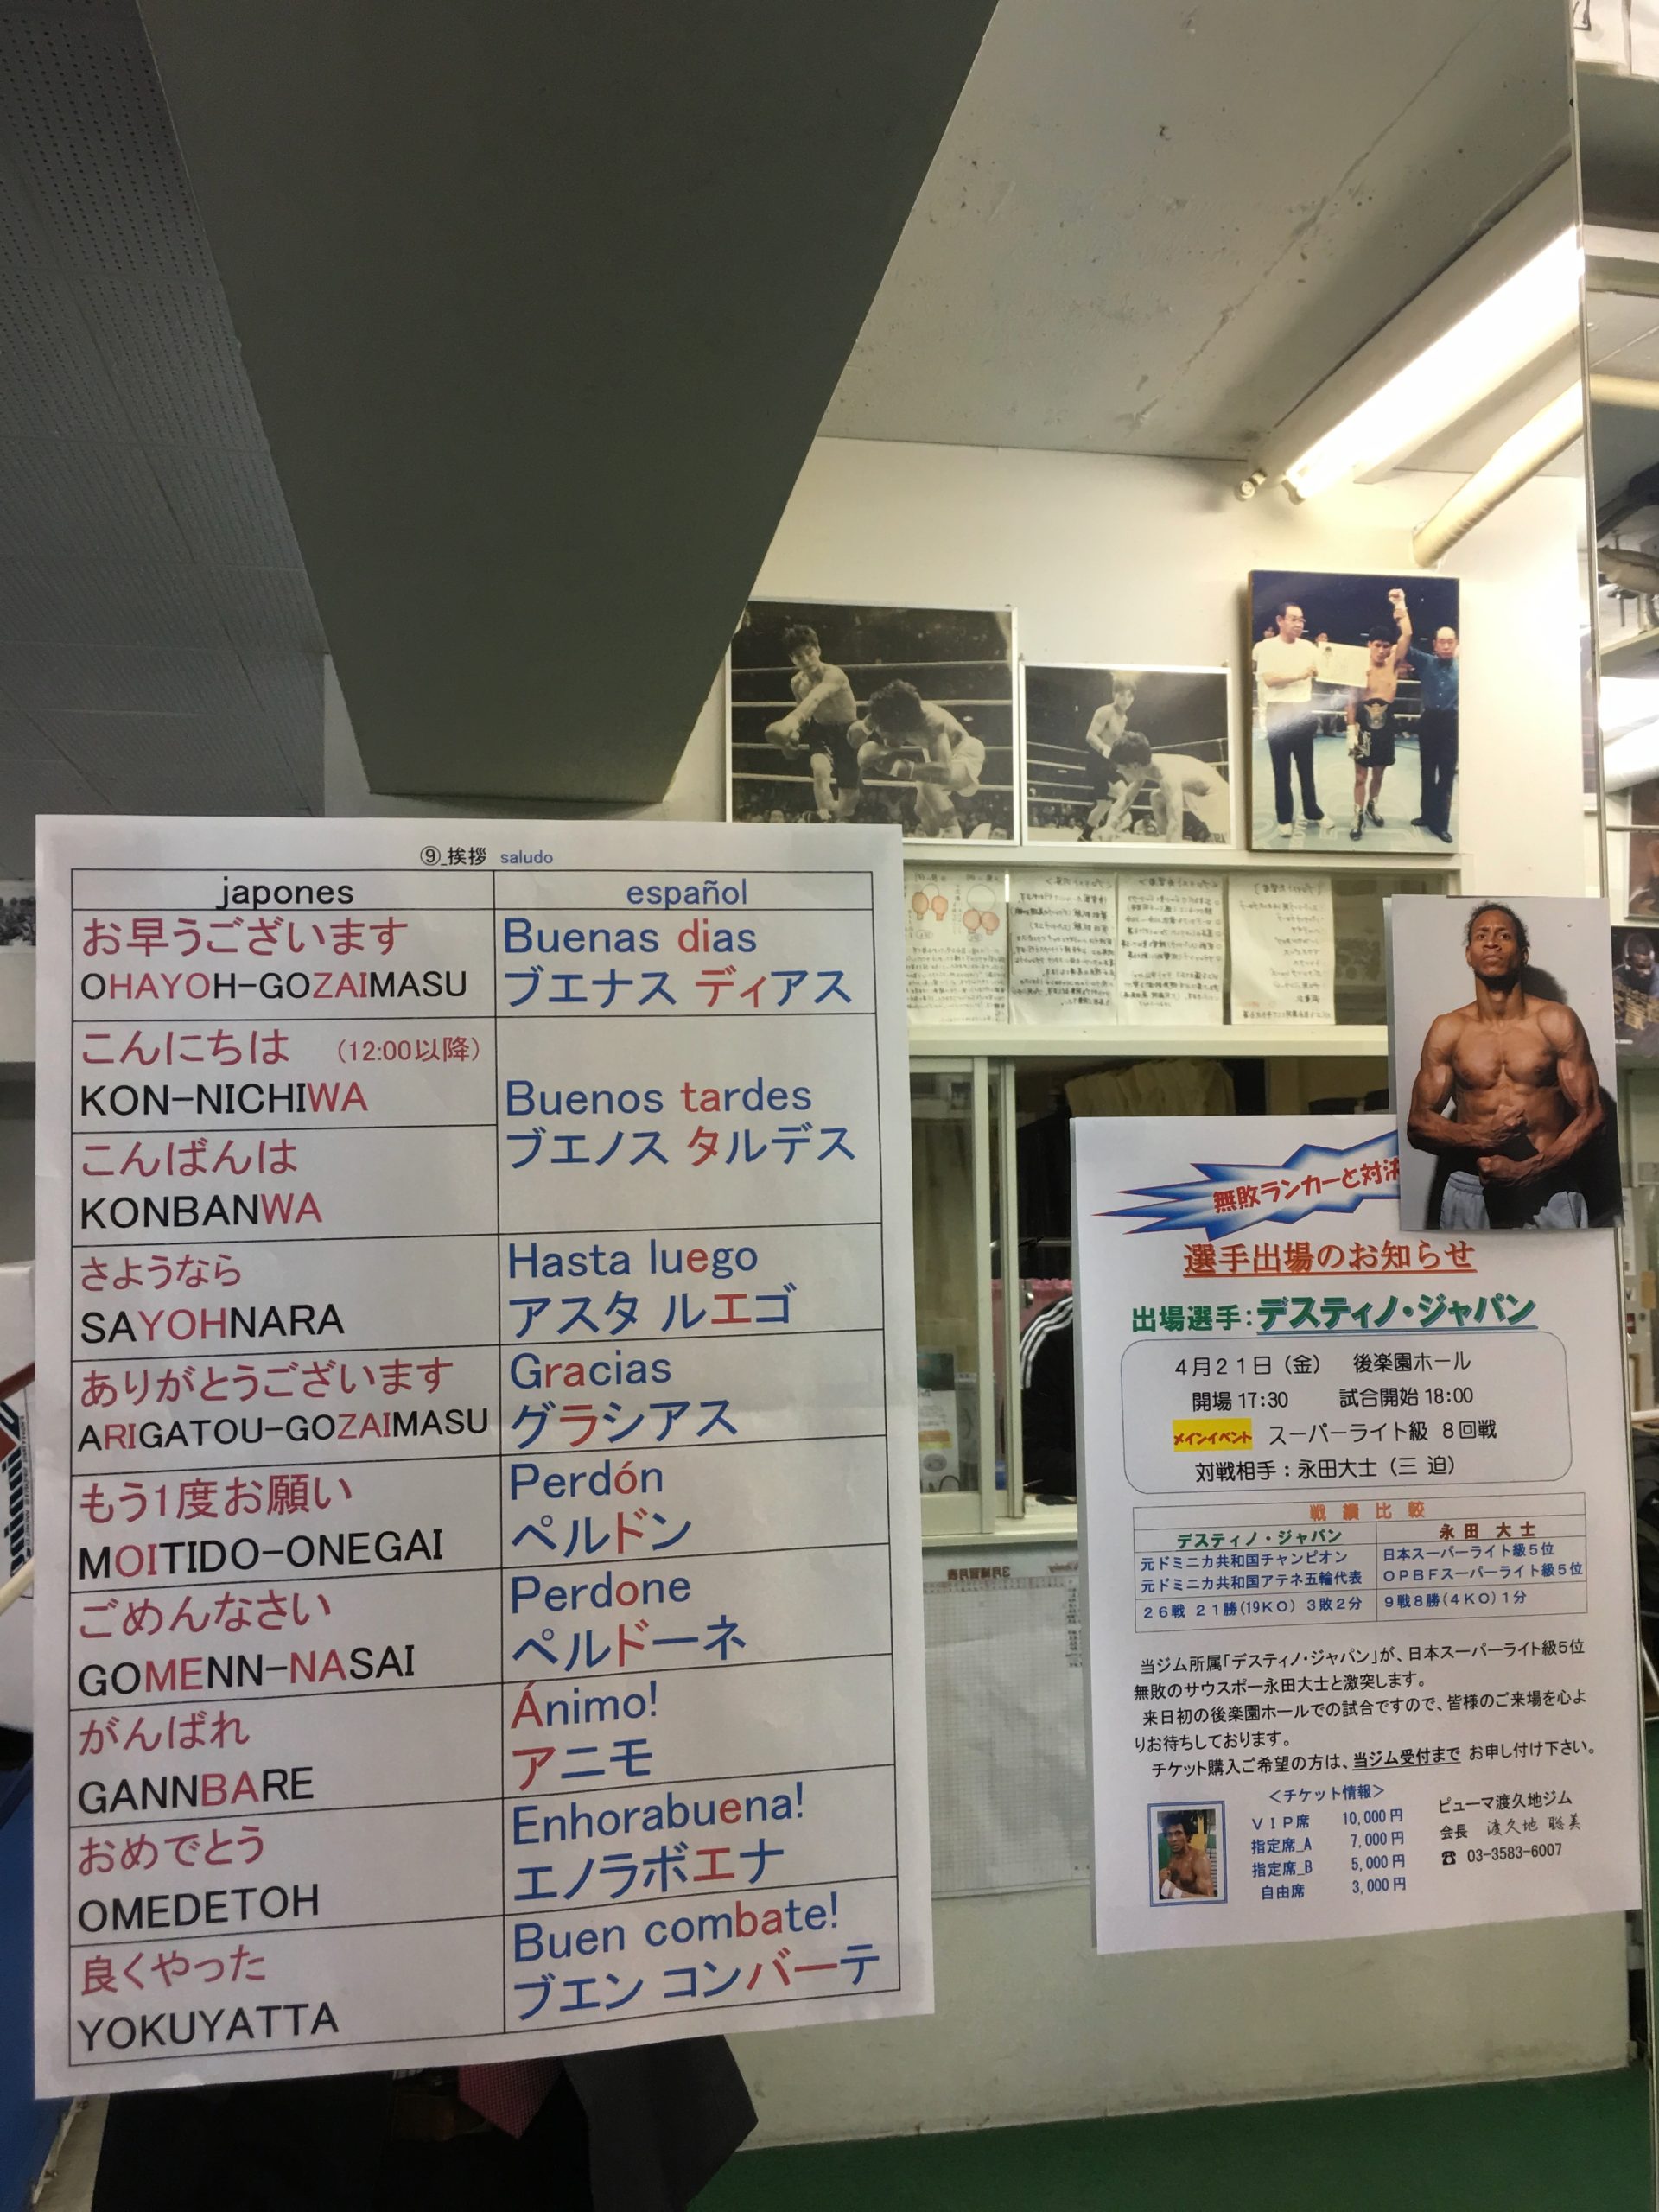 ⑨_挨拶 saludo
japones
español
お早うございます
OHAYOH-GOZAIMASU
Buenas dias
ブエナス ディアス
こんにちは (12:00以降)
KON-NICHIWA
こんばんは
KONBANWA
Buenos tardes
ブエノス タルデス
さようなら
SAYOHNARA
Hasta luego
アスタ ルエゴ
ありがとうございます
ARIGATOU-GOZAIMASU
Gracias
グラシアス
もう1度お願い
MOITIDO-ONEGAI
Perdón
ペルドン
ごめんなさい
GOMENN-NASAI
Perdone
ペルドーネ
がんばれ
GANNBARE
Ánimo!
アニモ
おめでとう
OMEDETOH
Enhorabuena!
エノラボエナ
良くやった
YOKUYATTA
Buen combate!
ブエン コンバーテ
無敗ランカーと対決
選手出場のお知らせ
出場選手:デスティノ・ジャパン
4月21日(金) 後楽園ホール
開場17:30 試合開始18:00
メインイベント スーパーライト級 8回戦
対戦相手:永田大士(三 迫)
戦 績 比 較
デスティノ・ジャパン
永田 大士
元ドミニカ共和国チャンピオン
元ドミニカ共和国アテネ五輪代表
日本スーパーライト級5位
OPBFスーパーライト級5位
26戦 21勝(19KO) 3敗2分
9戦8勝(4KO)1分
当ジム所属「デスティノ・ジャパン」が、日本スーパーライト級5位
無敗のサウスポー永田大士と激突します。
来日初の後楽園ホールでの試合ですので、皆様のご来場を心よ
りお待ちしております。
チケット購入ご希望の方は、当ジム受付まで お申し付け下さい。
<チケット情報>
VIP席 10,000円
指定席_A 7,000円
指定席_B 5,000円
自由席 3,000円
ピューマ渡久地ジム
会長 渡久地 聡美
☎ 03-3583-6007